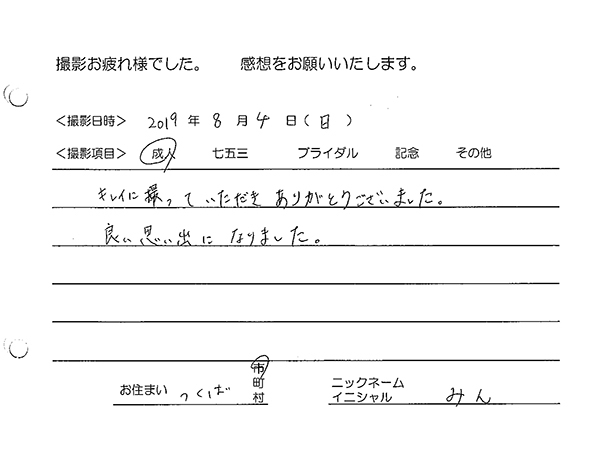 撮影お疲れ様でした。 感想をお願いいたします。
<撮影日時> 2019 年 8 月 4 日(日)
<撮影項目> 成人 七五三 ブライダル 記念 その他
キレイに撮っていただきありがとうございました。
良い思い出になりました。
お住まい つくば 市 町 村
ニックネーム イニシャル みん